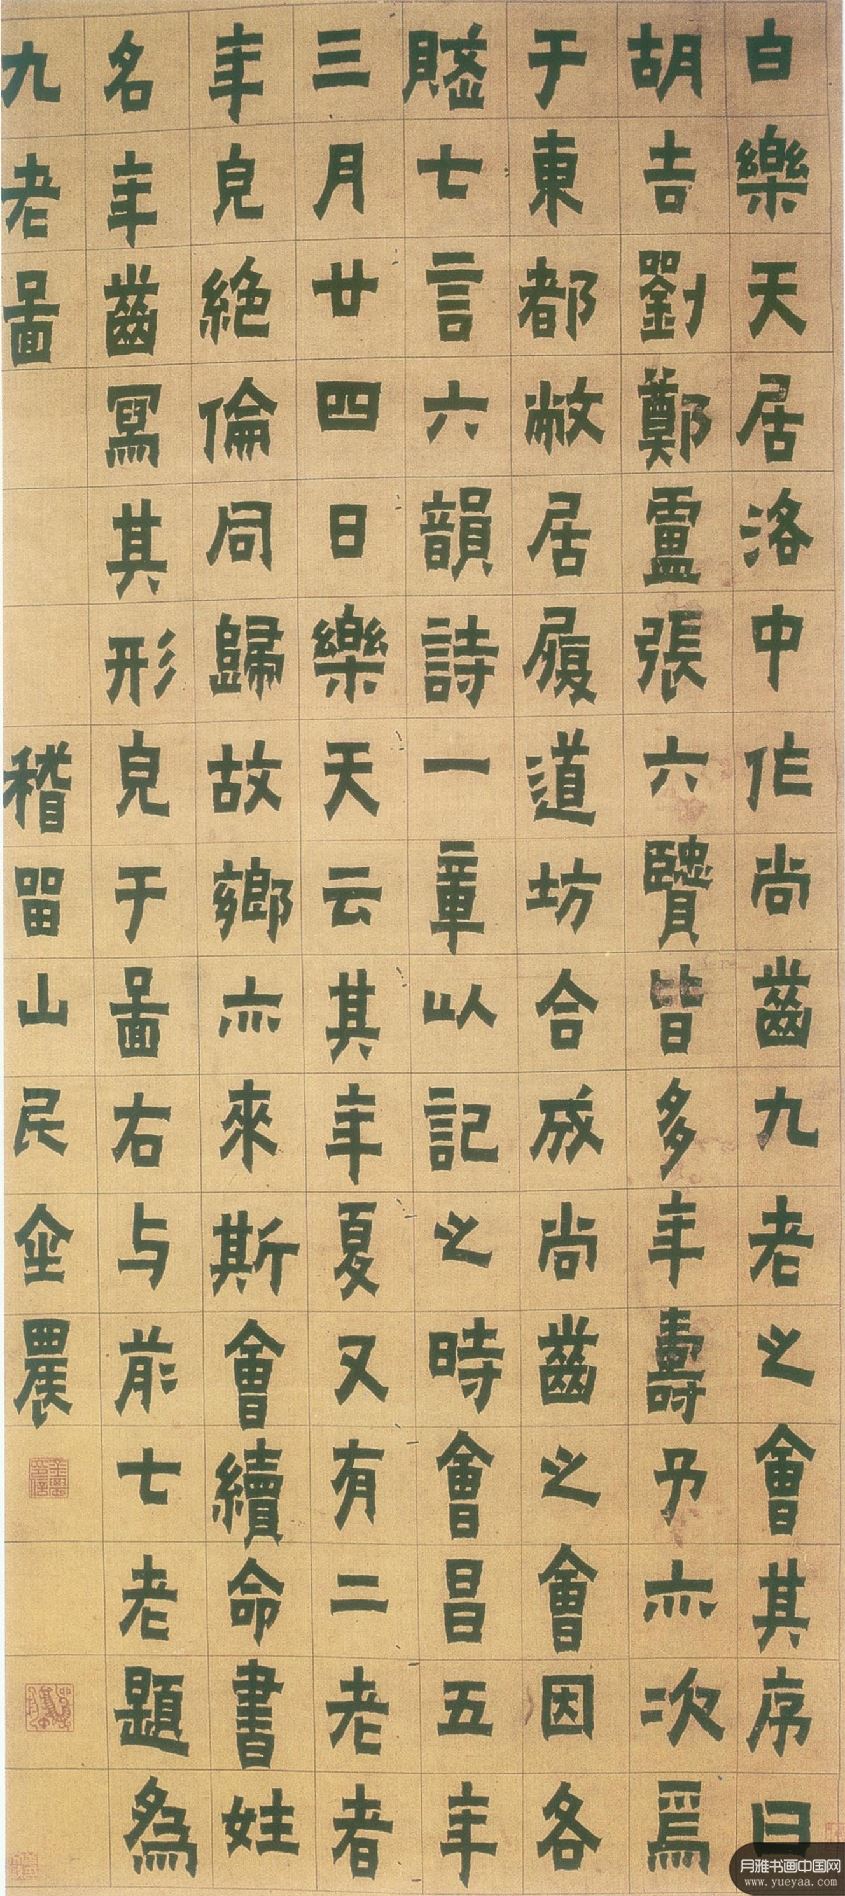 白樂天居洛中作尚齒九老之會其序曰
胡吉劉鄭盧張六賢皆多年壽予亦次焉
于東都敝居履道坊合成尚齒之會因各
賦七言六韻詩一章以記之時會昌五年
三月廿四日樂天云其年夏又有二老者
年皃絶倫同歸故鄉亦來斯會續命書姓
名年齒寫其形皃于圖右与前七老題為
九老圖
稽留山民金農
月雅书画中国网
www.yueyaa.com